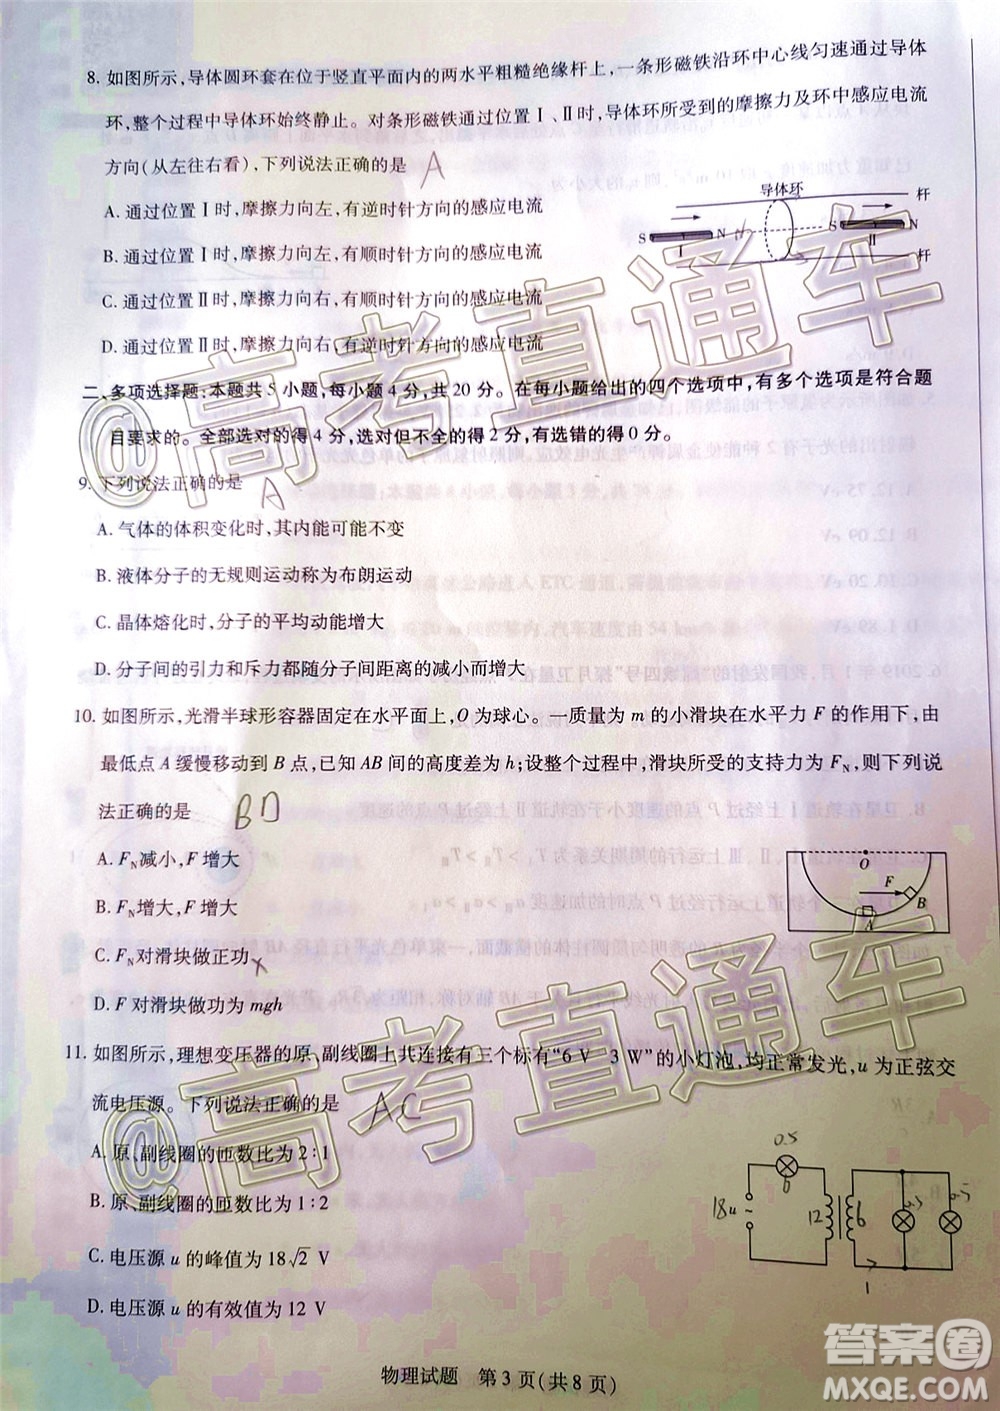 8. 如图所示,导体圆环套在位于竖直平面内的两水平粗糙绝缘杆上,一条形磁铁沿环中心线匀速通过导体
环,整个过程中导体环始终静止。对条形磁铁通过位置Ⅰ、Ⅱ时,导体环所受到的摩擦力及环中感应电流
方向(从左往右看),下列说法正确的是 A
A. 通过位置Ⅰ时,摩擦力向左,有逆时针方向的感应电流
B. 通过位置Ⅰ时,摩擦力向左,有顺时针方向的感应电流
C. 通过位置Ⅱ时,摩擦力向右,有顺时针方向的感应电流
D. 通过位置Ⅱ时,摩擦力向右,有逆时针方向的感应电流
导体环
杆
S N S N
Ⅰ Ⅱ
杆
二、多项选择题:本题共5小题,每小题4分,共20分。在每小题给出的四个选项中,有多个选项是符合题
目要求的。全部选对的得4分,选对但不全的得2分,有选错的得0分。
9. 下列说法正确的是 A
A. 气体的体积变化时,其内能可能不变
B. 液体分子的无规则运动称为布朗运动
C. 晶体熔化时,分子的平均动能增大
D. 分子间的引力和斥力都随分子间距离的减小而增大
10. 如图所示,光滑半球形容器固定在水平面上,O为球心。一质量为m的小滑块在水平力F的作用下,由
最低点A缓慢移动到B点,已知AB间的高度差为h;设整个过程中,滑块所受的支持力为FN,则下列说
法正确的是 BD
A. FN减小,F增大
B. FN增大,F增大
C. FN对滑块做正功 ×
D. F对滑块做功为mgh
O
F
B
A
11. 如图所示,理想变压器的原、副线圈上共连接有三个标有“6 V 3 W”的小灯泡,均正常发光,u为正弦交
流电压源。下列说法正确的是 AC
A. 原、副线圈的匝数比为2∶1
B. 原、副线圈的匝数比为1∶2
C. 电压源u的峰值为18√2 V
D. 电压源u的有效值为12 V
0.5
6
18 u ~ 12 6 0.5 0.5
1
物理试题 第3页(共8页)
@高考直通车
@高考直通车
答案圈
MXQE.COM